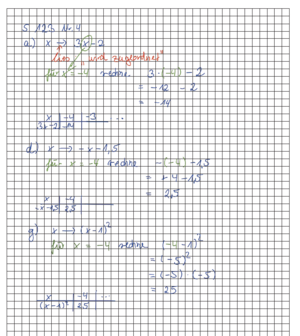 S. 123 Nr. 4
a) x → 3x - 2
Lies "wird zugeordnet"
für x = -4 rechne 3 · (-4) - 2
= -12 - 2
= -14
x | -4 | -3 ...
3x-2 | -14
d) x → -x - 1,5
für x = -4 rechne -(-4) - 1,5
= +4 - 1,5
= 2,5
x | -4
-x-1,5 | 2,5
g) x → (x-1)²
für x = -4 rechne (-4-1)²
= (-5)²
= (-5) · (-5)
= 25
x | -4 ...
(x-1)² | 25